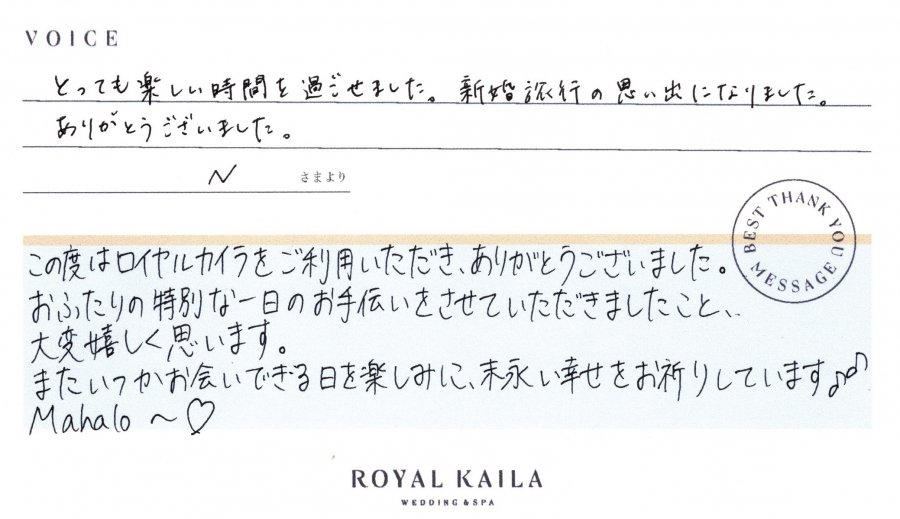 VOICE
とっても楽しい時間を過ごせました。新婚旅行の思い出になりました。
ありがとうございました。
N さまより
BEST THANK YOU MESSAGE
この度はロイヤルカイラをご利用いただき、ありがとうございました。
おふたりの特別な一日のお手伝いをさせていただきましたこと、
大変嬉しく思います。
またいつかお会いできる日を楽しみに、末永い幸せをお祈りしています♪♪
Mahalo ～♡
ROYAL KAILA
WEDDING & SPA